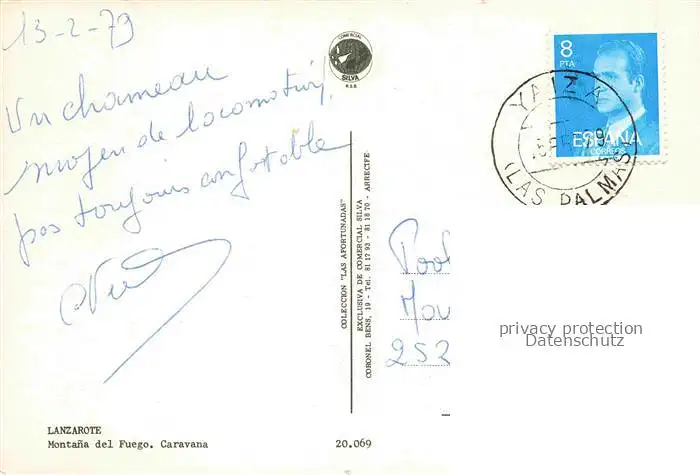 13-2-79
Un chameau
moyen de locomotion,
pas toujours confortable
COMERCIAL
SILVA
8
PTA
ESPAÑA
CORREOS
YAIZA
(LAS PALMAS)
COLECCION "LAS AFORTUNADAS"
EXCLUSIVA DE COMERCIAL SILVA
CORONEL BENS, 19 - Tel. 81 17 93 - 81 18 70 - ARRECIFE
Mou
252
privacy protection
Datenschutz
LANZAROTE
Montaña del Fuego. Caravana
20.069